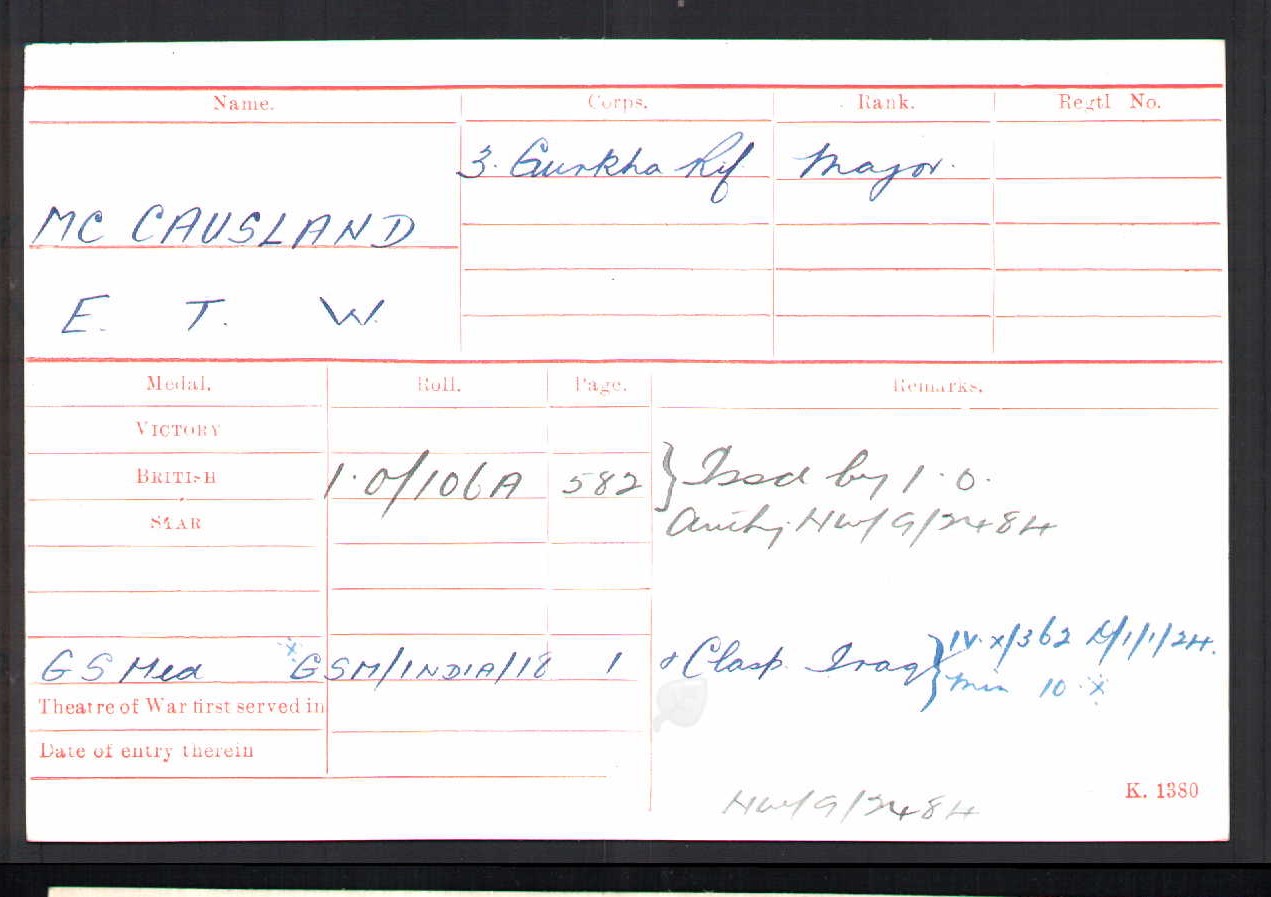 Name. Corps. Rank. Regtl No.
3. Gurkha Rif Major.
MC CAUSLAND
E. T. W.
Medal. Roll. Page. Remarks.
VICTORY
BRITISH I.O/106A 582 } Issd by I.O.
STAR Authy. NW/9/2484
GS Med x GSM/INDIA/18 1 & Clasp Iraq } IV.X/362 D/1/1/24.
Min 10.X
Theatre of War first served in
Date of entry therein
K. 1380
NW/9/2484